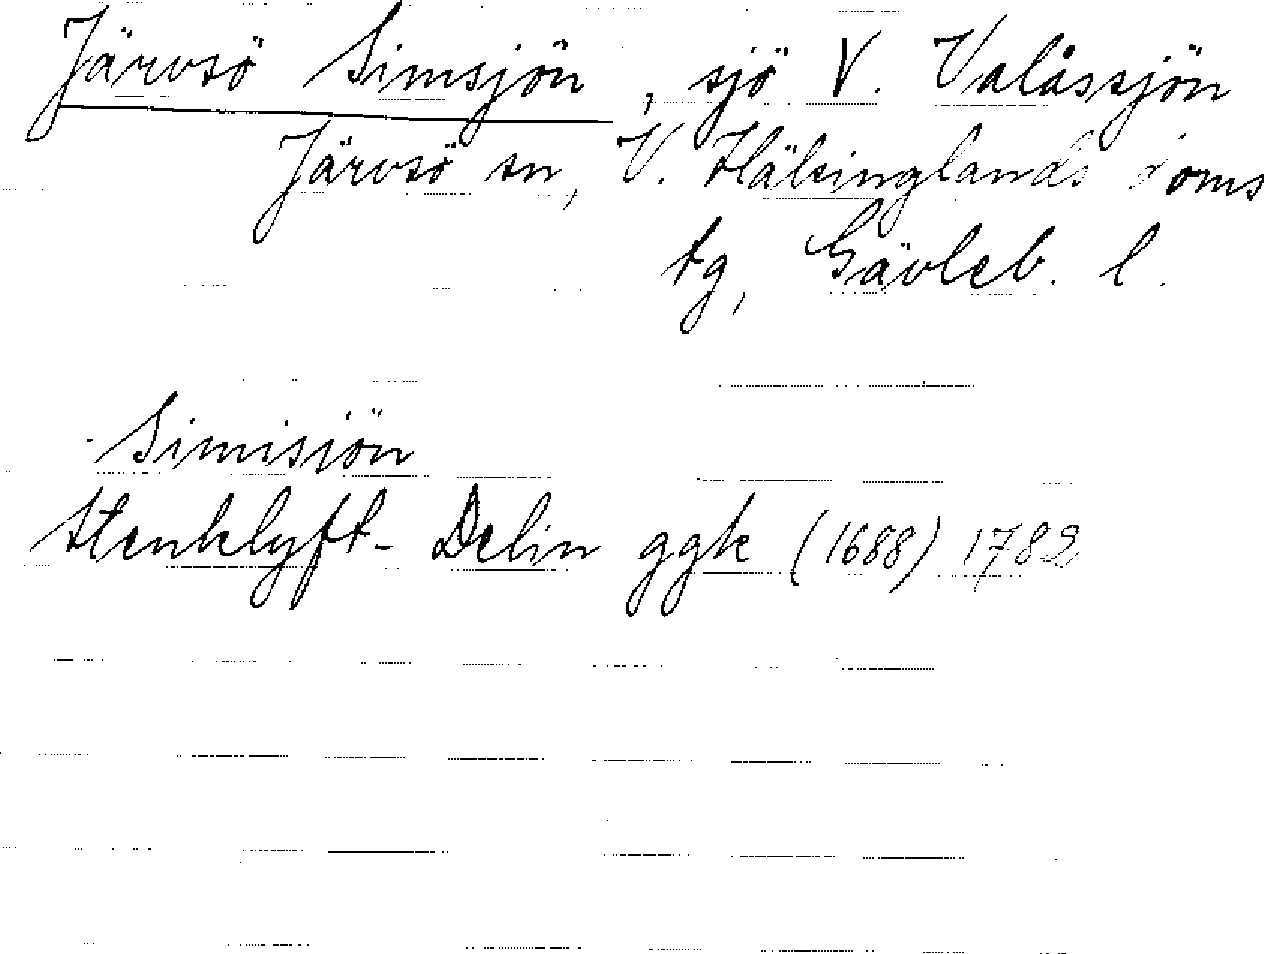 Järvsö Simsjön, sjö V. Valåssjön
Järvsö sn, V. Hälsinglands doms
tg, Gävleb. l.
Simisjön
Stenklyft- Delin ggk (1688) 1782